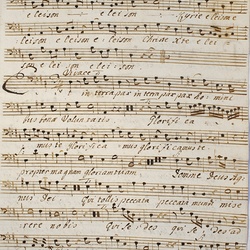 eleison eleison Kyrie eleison e
leison eleison eleison Christe Xte elei
son elei son elei son.
Vivace
in terra pax in terra pax pax homini
bus bonæ Voluntatis. Glorifica
mus te glorifica mus glorificamus te
propter magnam gloriam tuam Domine Deus Ag
nus Dei Qui tollis peccata peccata mundi mise
rere nobis Qui sedes Qui sedes ad